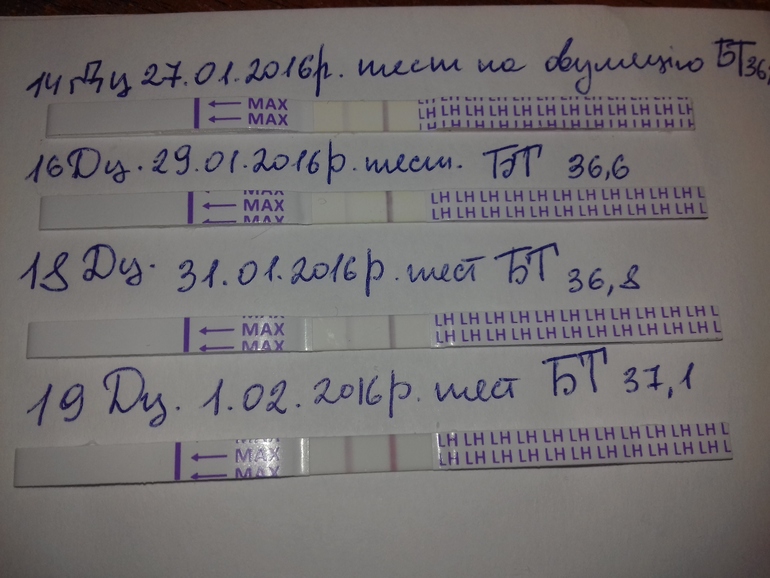 14 Дц 27.01.2016р. тест на овуляцію БТ 36,
← MAX
← MAX
LH LH LH LH LH LH LH LH LH LH LH
LH LH LH LH LH LH LH LH LH LH LH
LH LH LH LH LH LH LH LH LH LH LH
16 Дц. 29.01.2016р. тест. БТ 36,6
MAX
← MAX
MAX
LH LH LH LH LH LH LH LH LH LH L
LH LH LH LH LH LH LH LH LH LH L
18 Дц. 31.01.2016р. тест БТ 36,8
MAX
← MAX
← MAX
LH LH LH LH LH LH LH LH LH LH LH L
LH LH LH LH LH LH LH LH LH LH LH L
19 Дц. 1.02.2016р. тест БТ 37,1
MAX
← MAX
← MAX
LH LH LH LH LH LH LH LH LH LH LH L
LH LH LH LH LH LH LH LH LH LH LH L